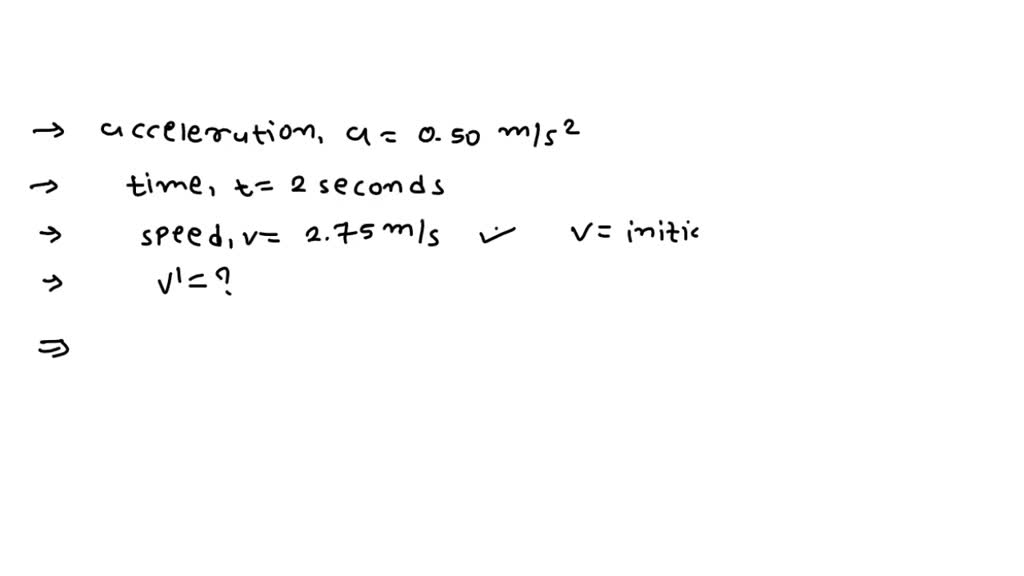 → acceleration, a = 0.50 m/s²
→ time, t = 2 seconds
→ speed, v = 2.75 m/s ✓ v = initic
→ v' = ?
⇒